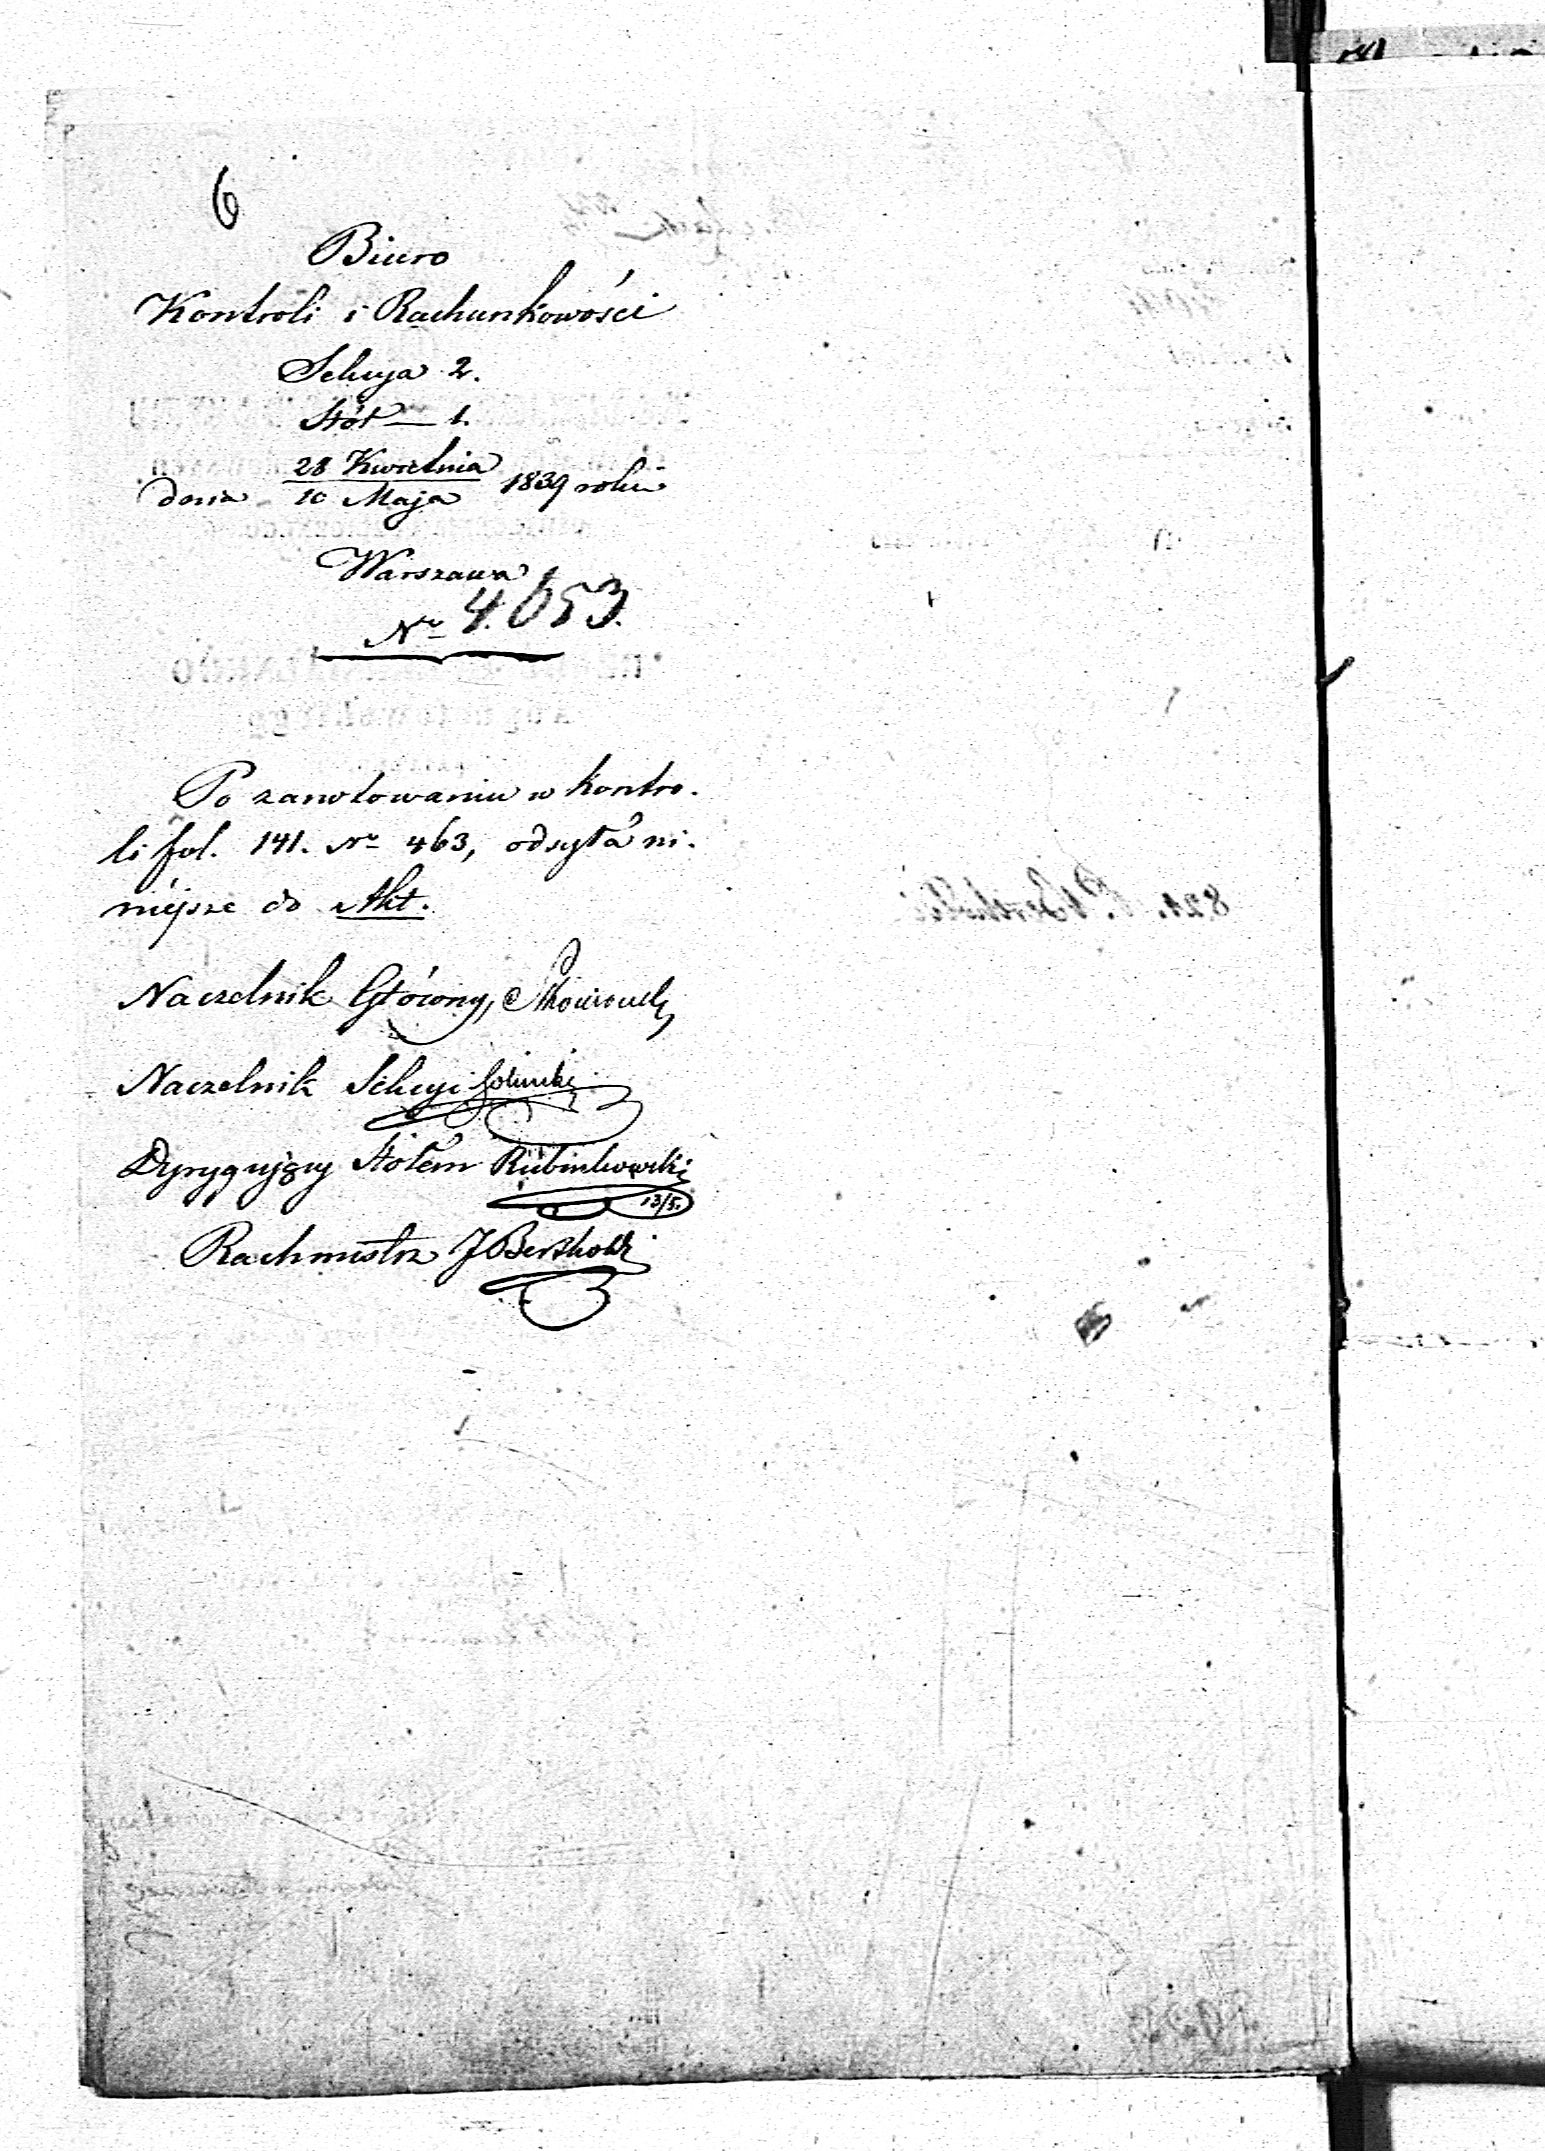 6
Biuro
Kontroli i Rachunkowości
Sekcya 2.
Stół — 1.
dnia 28 Kwietnia / 10 Maja 1839 roku
Warszawa
Nr 4.653.
Po zanotowaniu w kontro-
li fol. 141. Nr 463, odsyła ni-
niejsze do Akt.
Naczelnik Główny,
Naczelnik Sekcyi
Dyrygujący Stołem Rubinkowski
13/5.
Rachmistrz J Berthold